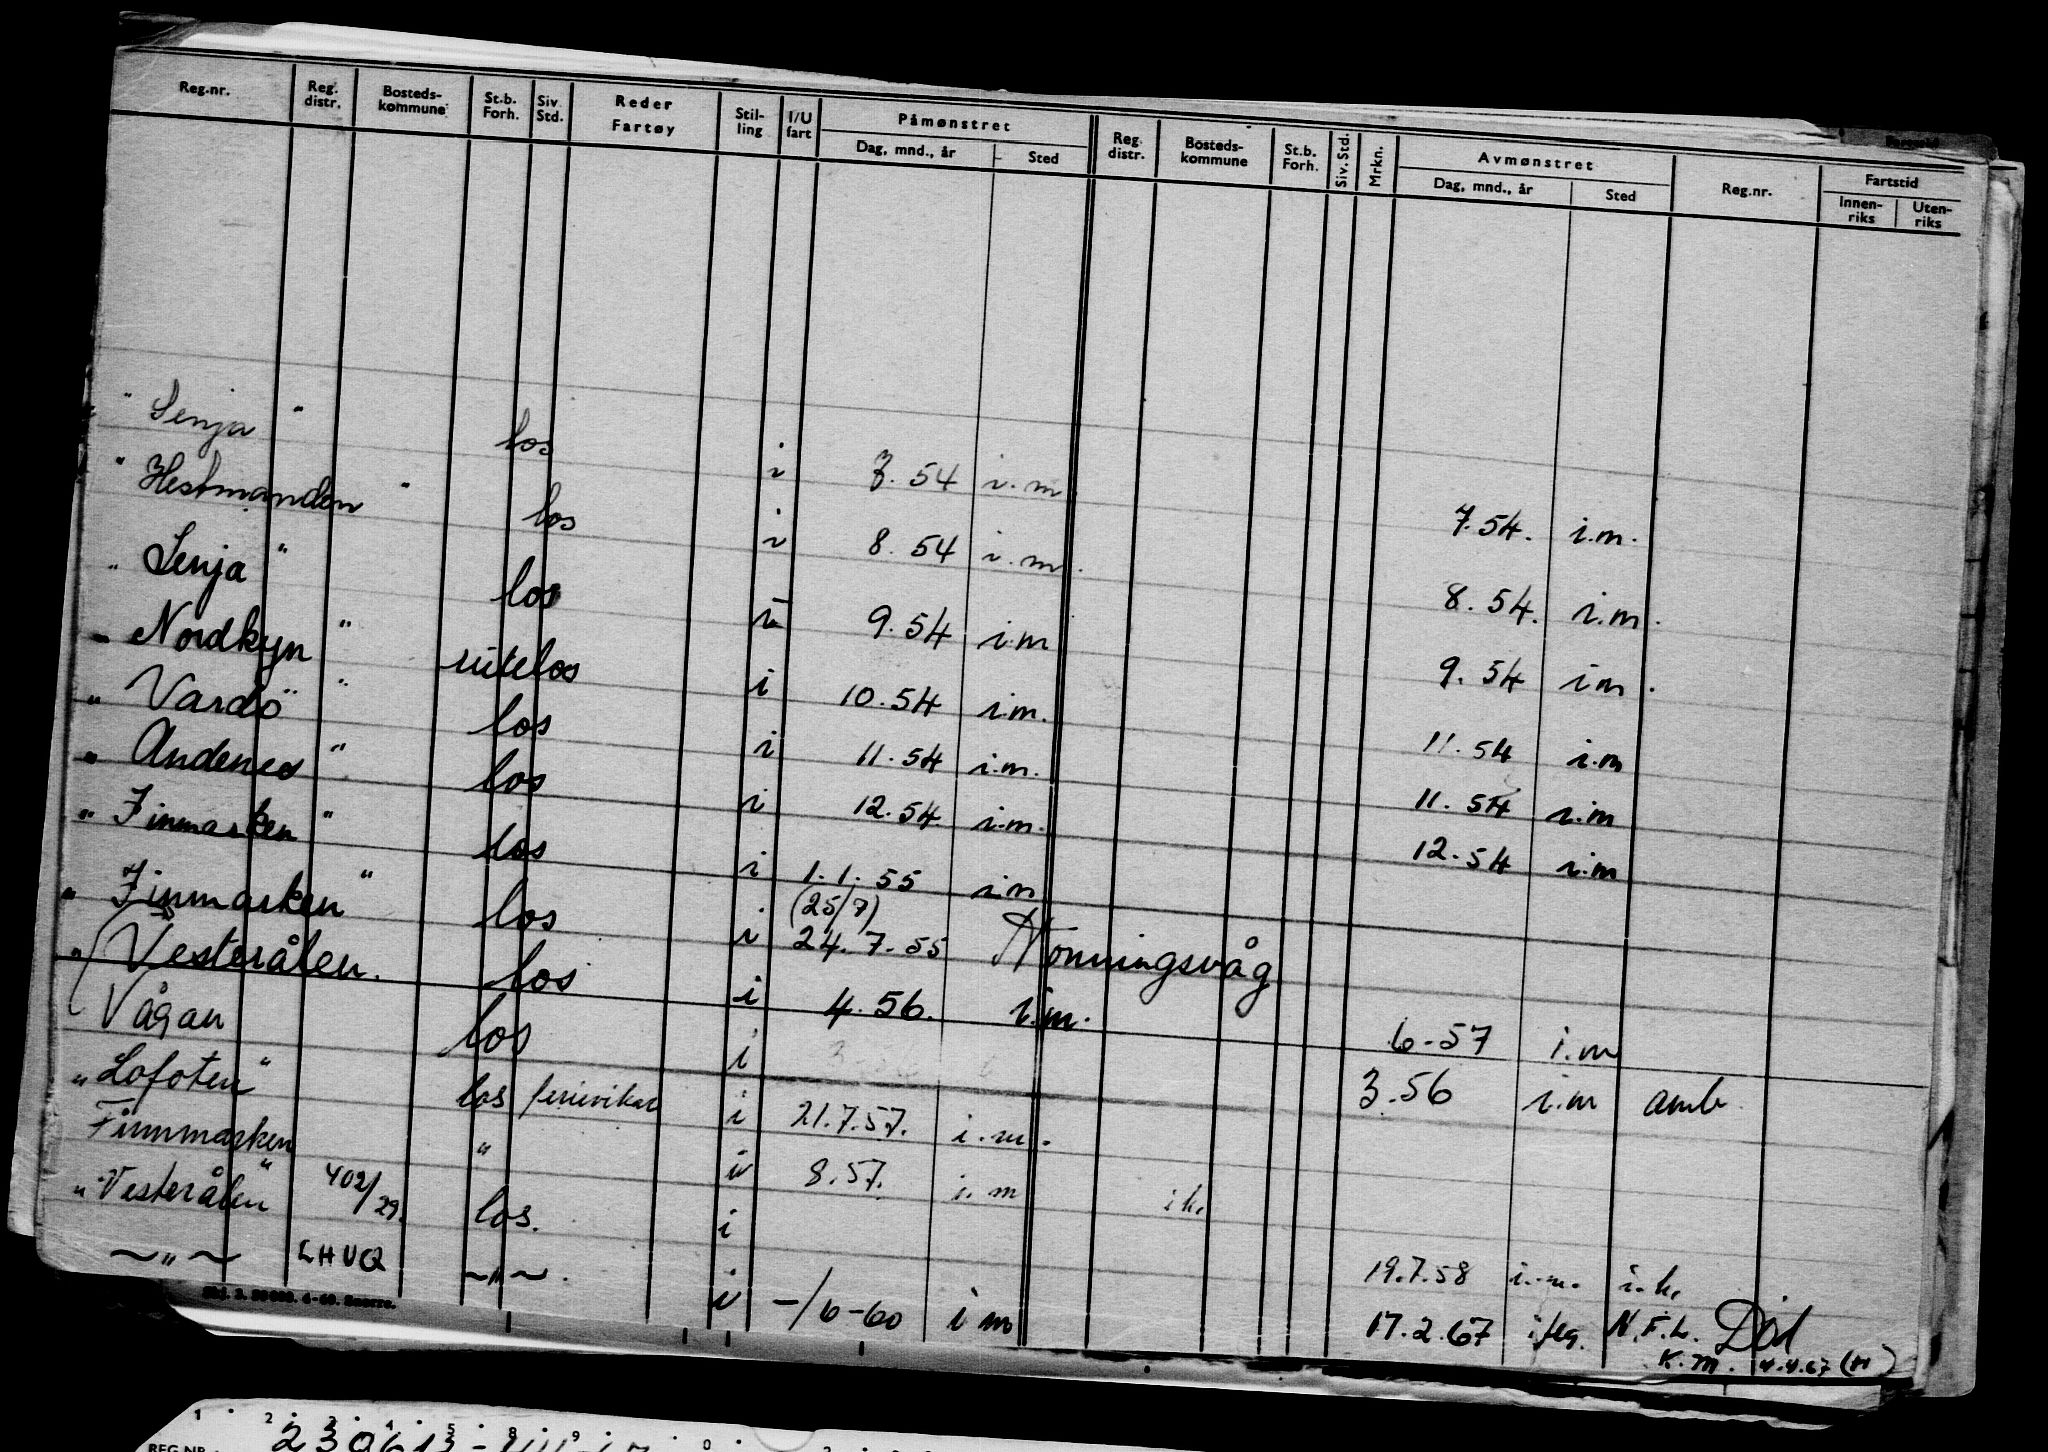 Reg.nr. Reg. distr. Bosteds-kommune St.b. Forh. Siv. Std. Reder Fartøy Stil-ling I/U fart Påmønstret Dag, mnd., år Sted Reg. distr. Bosteds-kommune St.b. Forh. Siv. Std. Mrkn. Avmønstret Dag, mnd., år Sted Reg.nr. Fartstid Innen-riks Uten-riks
" Senja " los i 3.54 i.m 7.54. i.m.
" Hestmanden " los i 8.54 i.m. 8.54. i.m.
" Senja " los i 9.54 i.m 9.54 i m.
" Nordkyn " rutelos i 10.54 i.m. 11.54 i.m
" Vardö " los i 11.54 i.m. 11.54 i.m
" Andenes " los i 12.54 i.m. 12.54 i.m
" Finmarken " los i 1.1.55 i.m
" Finmarken " los i (25/7) 24.7.55 Honningsvåg
" Vesterålen. los i 4.56. i.m. 6-57 i.m
Vågan los i 3.56 i.m amb.
" Lofoten " los ferievikar i 21.7.57. i.m.
Finnmarken " i 8.57. i.m i k.
" Vesterålen " 402/29. los. i 19.7.58 i.m. i.k.
~ " ~ LHUQ ~ " ~. i -/6-60 i m 17.2.67 N.F.L. Död
K.M. 4.4.67 (H)
REG.NR.